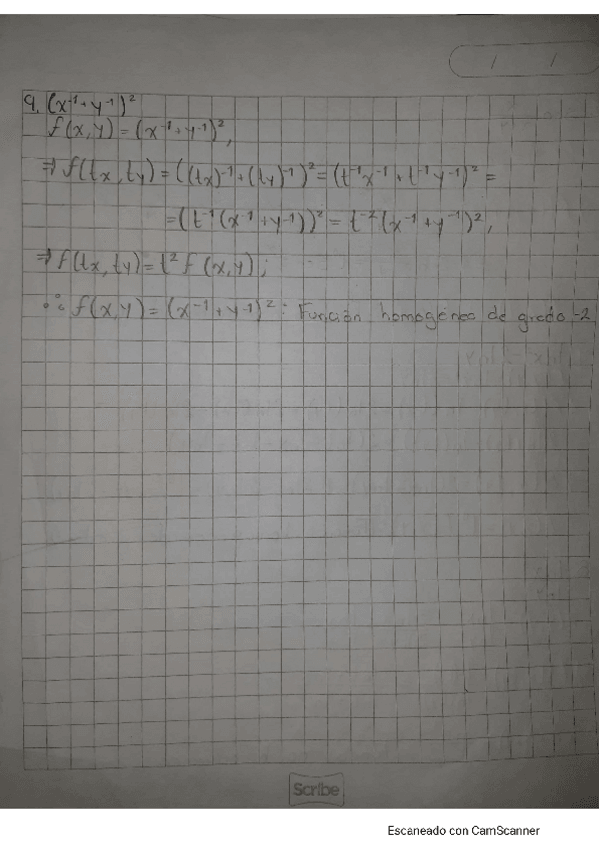 / /
9. (x⁻¹+y⁻¹)²
f(x,y)=(x⁻¹+y⁻¹)²,
⇒f(tx,ty)=((tx)⁻¹+(ty)⁻¹)²=(t⁻¹x⁻¹+t⁻¹y⁻¹)²=
=(t⁻¹(x⁻¹+y⁻¹))²=t⁻²(x⁻¹+y⁻¹)²,
⇒f(tx,ty)=t²f(x,y);
∴f(x,y)=(x⁻¹+y⁻¹)²: Función homogénea de grado -2
Scribe
Escaneado con CamScanner